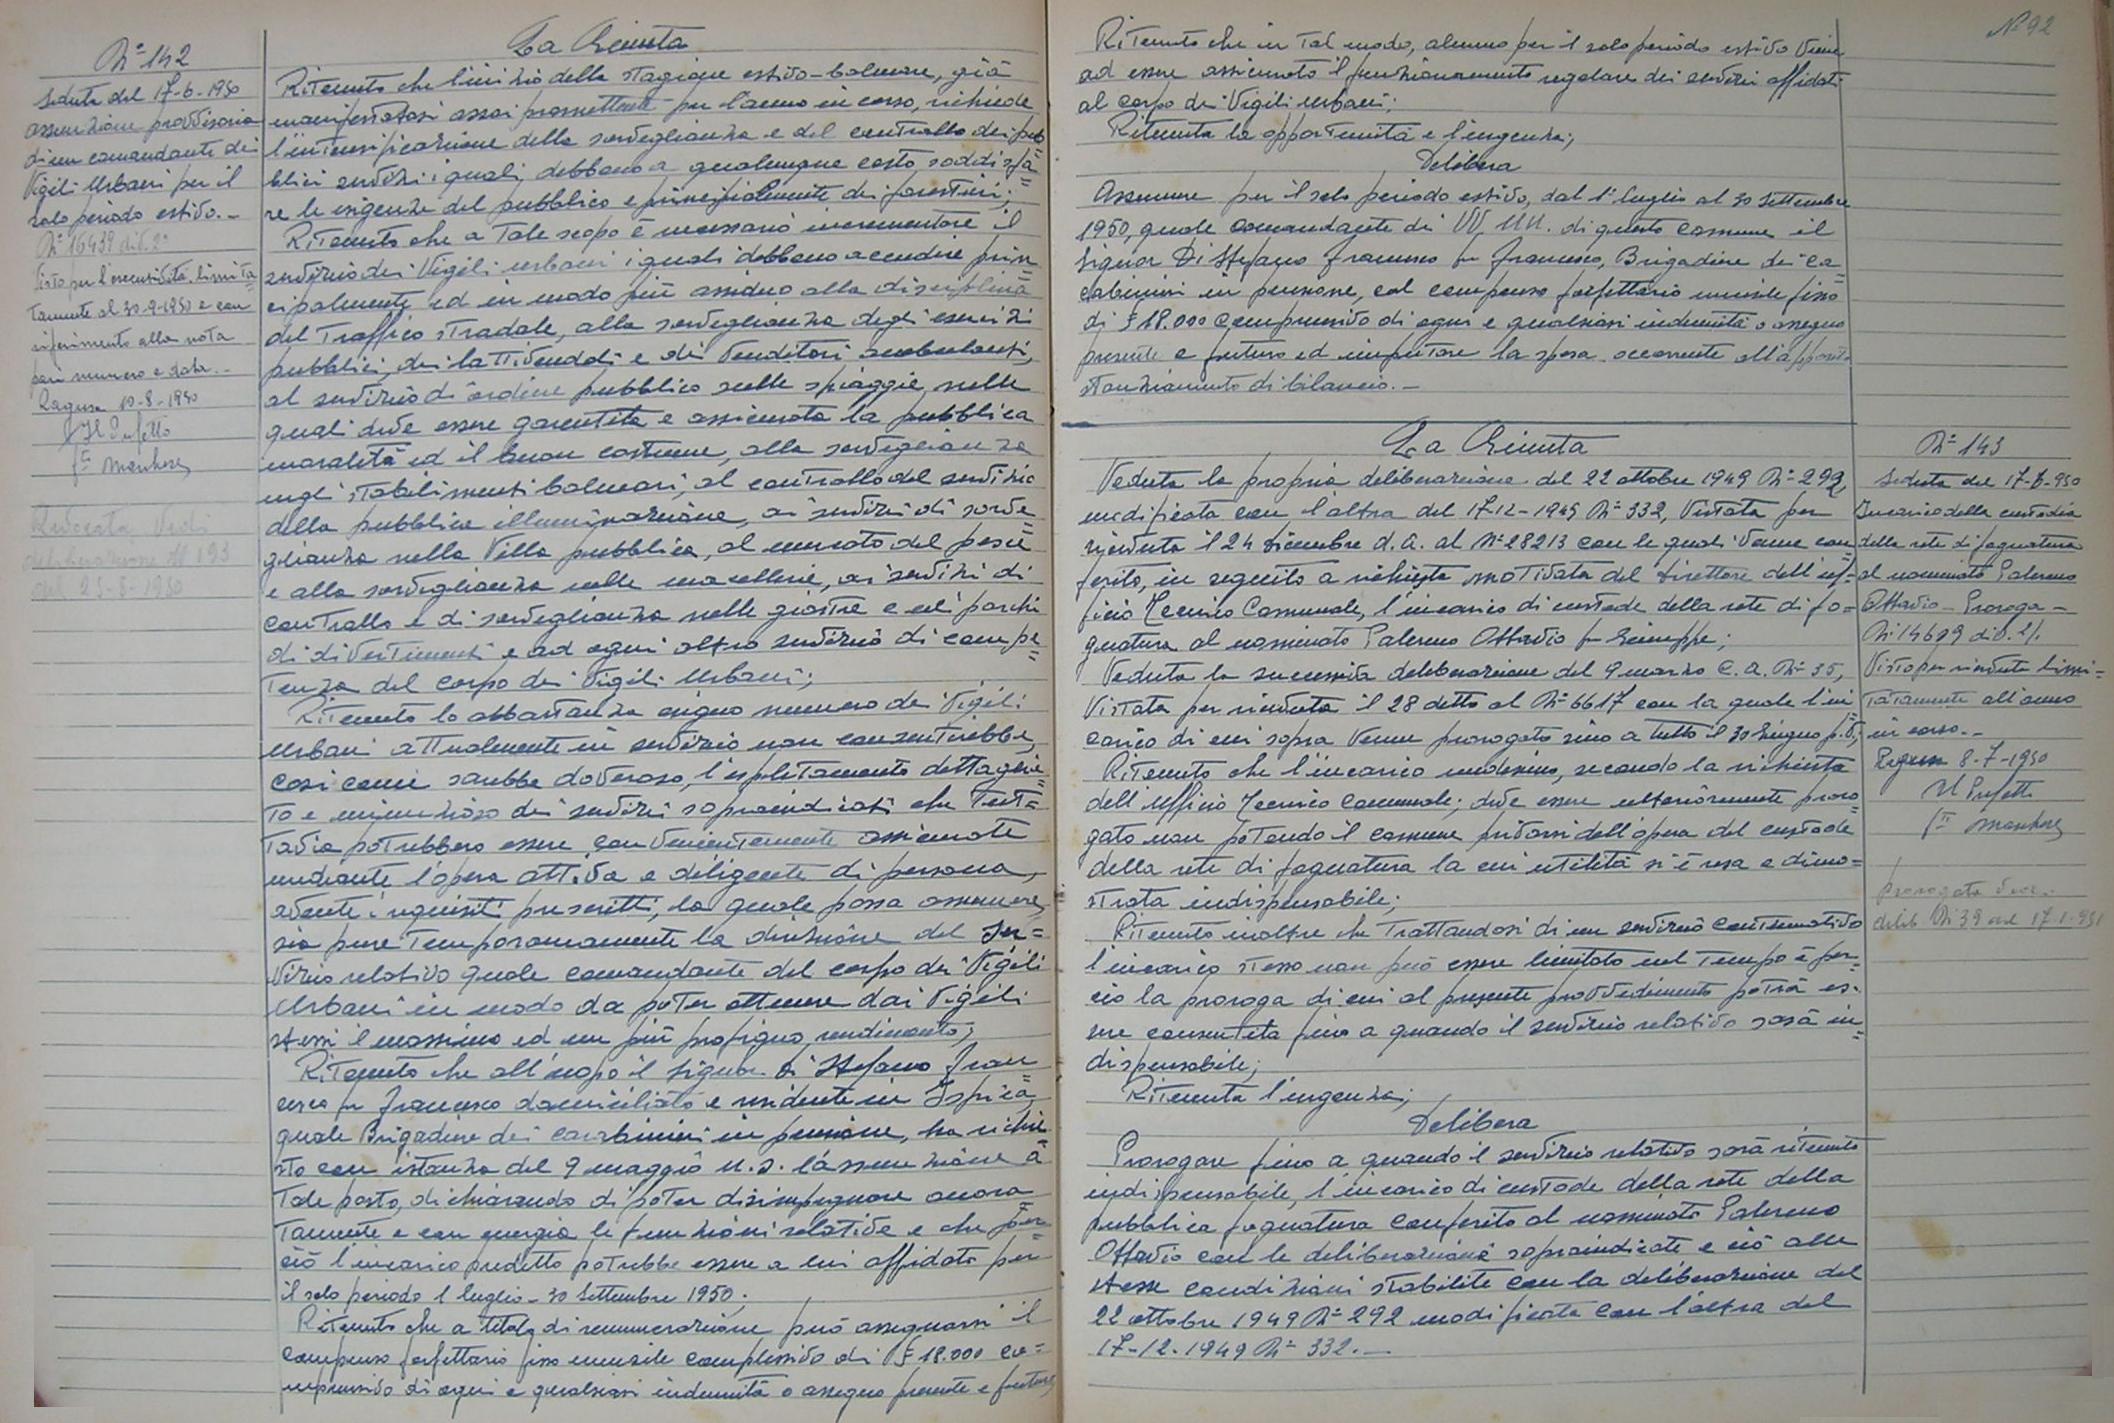 Nº 142
Seduta del 17-6-1950
assunzione provvisoria
di un comandante dei
Vigili Urbani per il
solo periodo estivo. -
Nº 16439 div. 2ª
Visto per l'esecutività limita=
tamente al 30-9-1950 e con
riferimento alla nota
pari numero e data. -
Ragusa 10-8-1950
Il Prefetto
Revocata Vedi
deliberazione Nº 193
del 25-8-1950
La Giunta
Ritenuto che l'inizio della stagione estivo-balneare, già
manifestatasi assai promettente per l'anno in corso, richiede
l'intensificazione della sorveglianza e del controllo dei pub=
blici servizi i quali debbono a qualunque costo soddisfa=
re le esigenze del pubblico e principalmente dei forestieri;
Ritenuto che a tale scopo è necessario incrementare il
servizio dei Vigili urbani i quali debbono accudire prin=
cipalmente ed in modo più assiduo alla disciplina
del traffico stradale, alla sorveglianza degli esercizi
pubblici, dei lattivendoli e dei venditori ambulanti,
al servizio di ordine pubblico nelle spiaggie, nelle
quali deve essere garentita e assicurata la pubblica
moralità ed il buon costume, alla sorveglianza
negli stabilimenti balneari, al controllo del servizio
della pubblica illuminazione, ai servizi di sorve=
glianza nella Villa pubblica, al mercato del pesce
e alla sorveglianza nelle macellerie, ai servizi di
controllo e di sorveglianza nelle giostre e nei parchi
di divertimenti e ad ogni altro servizio di compe=
tenza del corpo dei Vigili Urbani;
Ritenuto lo abbastanza esiguo numero dei Vigili
Urbani attualmente in servizio non consentirebbe,
così come sarebbe doveroso, l'espletamento dettaglia=
to e minuzioso dei servizi sopraindicati che tut=
tavia potrebbero essere convenientemente assicurate
mediante l'opera attiva e diligente di persona,
avente i requisiti prescritti, la quale possa assumere,
sia pure temporaneamente la direzione del ser=
vizio relativo quale comandante del corpo dei Vigili
Urbani in modo da poter ottenere dai Vigili
stessi il massimo ed un più proficuo rendimento;
Ritenuto che all'uopo il signor Di Stefano Fran=
cesco fu Francesco domiciliato e residente in Ispica,
quale Brigadiere dei carabinieri in pensione, ha richie=
sto con istanza del 9 maggio u.s. l'assunzione a
tale posto, dichiarando di poter disimpegnare onora=
tamente e con energia le funzioni relative e che per=
ciò l'incarico predetto potrebbe essere a lui affidato per
il solo periodo 1 luglio - 30 Settembre 1950;
Ritenuto che a titolo di remunerazione può assegnarsi il
compenso forfettario fisso mensile complessivo di £ 18.000 co=
mprensivo di ogni e qualsiasi indennità o assegno presente e futuro,
Nº 92
Ritenuto che in tal modo, almeno per il solo periodo estivo viene
ad essere assicurato il funzionamento regolare dei servizi affidati
al corpo dei Vigili Urbani;
Ritenuta la opportunità e l'urgenza;
Delibera
Assumere per il solo periodo estivo, dal 1° luglio al 30 Settembre
1950, quale comandante di VV. UU. di questo comune il
Signor Di Stefano Francesco fu Francesco, Brigadiere dei ca=
rabinieri in pensione, col compenso forfettario mensile fisso
di £ 18.000 comprensivo di ogni e qualsiasi indennità o assegno
presente e futuro ed imputare la spesa occorrente all'apposito
stanziamento di bilancio. -
La Giunta
Veduta la propria deliberazione del 22 ottobre 1949 Nº 292,
modificata con l'altra del 17-12-1949 Nº 332, Vistata per
ricevuta il 24 dicembre d.a. al Nº 28213 con le quali venne con=
ferito, in seguito a richiesta motivata del Direttore dell'uf=
ficio Tecnico Comunale, l'incarico di custode della rete di fo=
gnatura al nominato Palermo Ottavio fu Giuseppe;
Veduta la successiva deliberazione del 9 marzo c.a. Nº 35,
Vistata per ricevuta il 28 detto al Nº 6617 con la quale l'in=
carico di cui sopra venne prorogato sino a tutto il 30 Giugno p.v.;
Ritenuto che l'incarico medesimo, secondo la richiesta
dell'Ufficio Tecnico Comunale; deve essere ulteriormente proro=
gato non potendo il comune privarsi dell'opera del custode
della rete di fognatura la cui utilità si è resa e dimo=
strata indispensabile;
Ritenuto inoltre che trattandosi di un servizio continuativo
l'incarico stesso non può essere limitato nel tempo e per=
ciò la proroga di cui al presente provvedimento potrà es=
sere consentita fino a quando il servizio relativo sarà in=
dispensabile;
Ritenuta l'urgenza;
Delibera
Prorogare fino a quando il servizio relativo sarà ritenuto
indispensabile, l'incarico di custode della rete della
pubblica fognatura conferito al nominato Palermo
Ottavio con le deliberazioni sopraindicate e ciò alle
stesse condizioni stabilite con la deliberazione del
22 ottobre 1949 Nº 292 modificata con l'altra del
17-12-1949 Nº 332. -
Nº 143
Seduta del 17-6-950
Incarico della custodia
della rete di fognatura
al nominato Palermo
Ottavio - Proroga -
Nº 14629 div. 2ª.
Visto per ricevuta limi=
tatamente all'anno
in corso. -
Ragusa 8-7-1950
Il Prefetto
prorogata con
delib. Nº 39 del 17-1-951